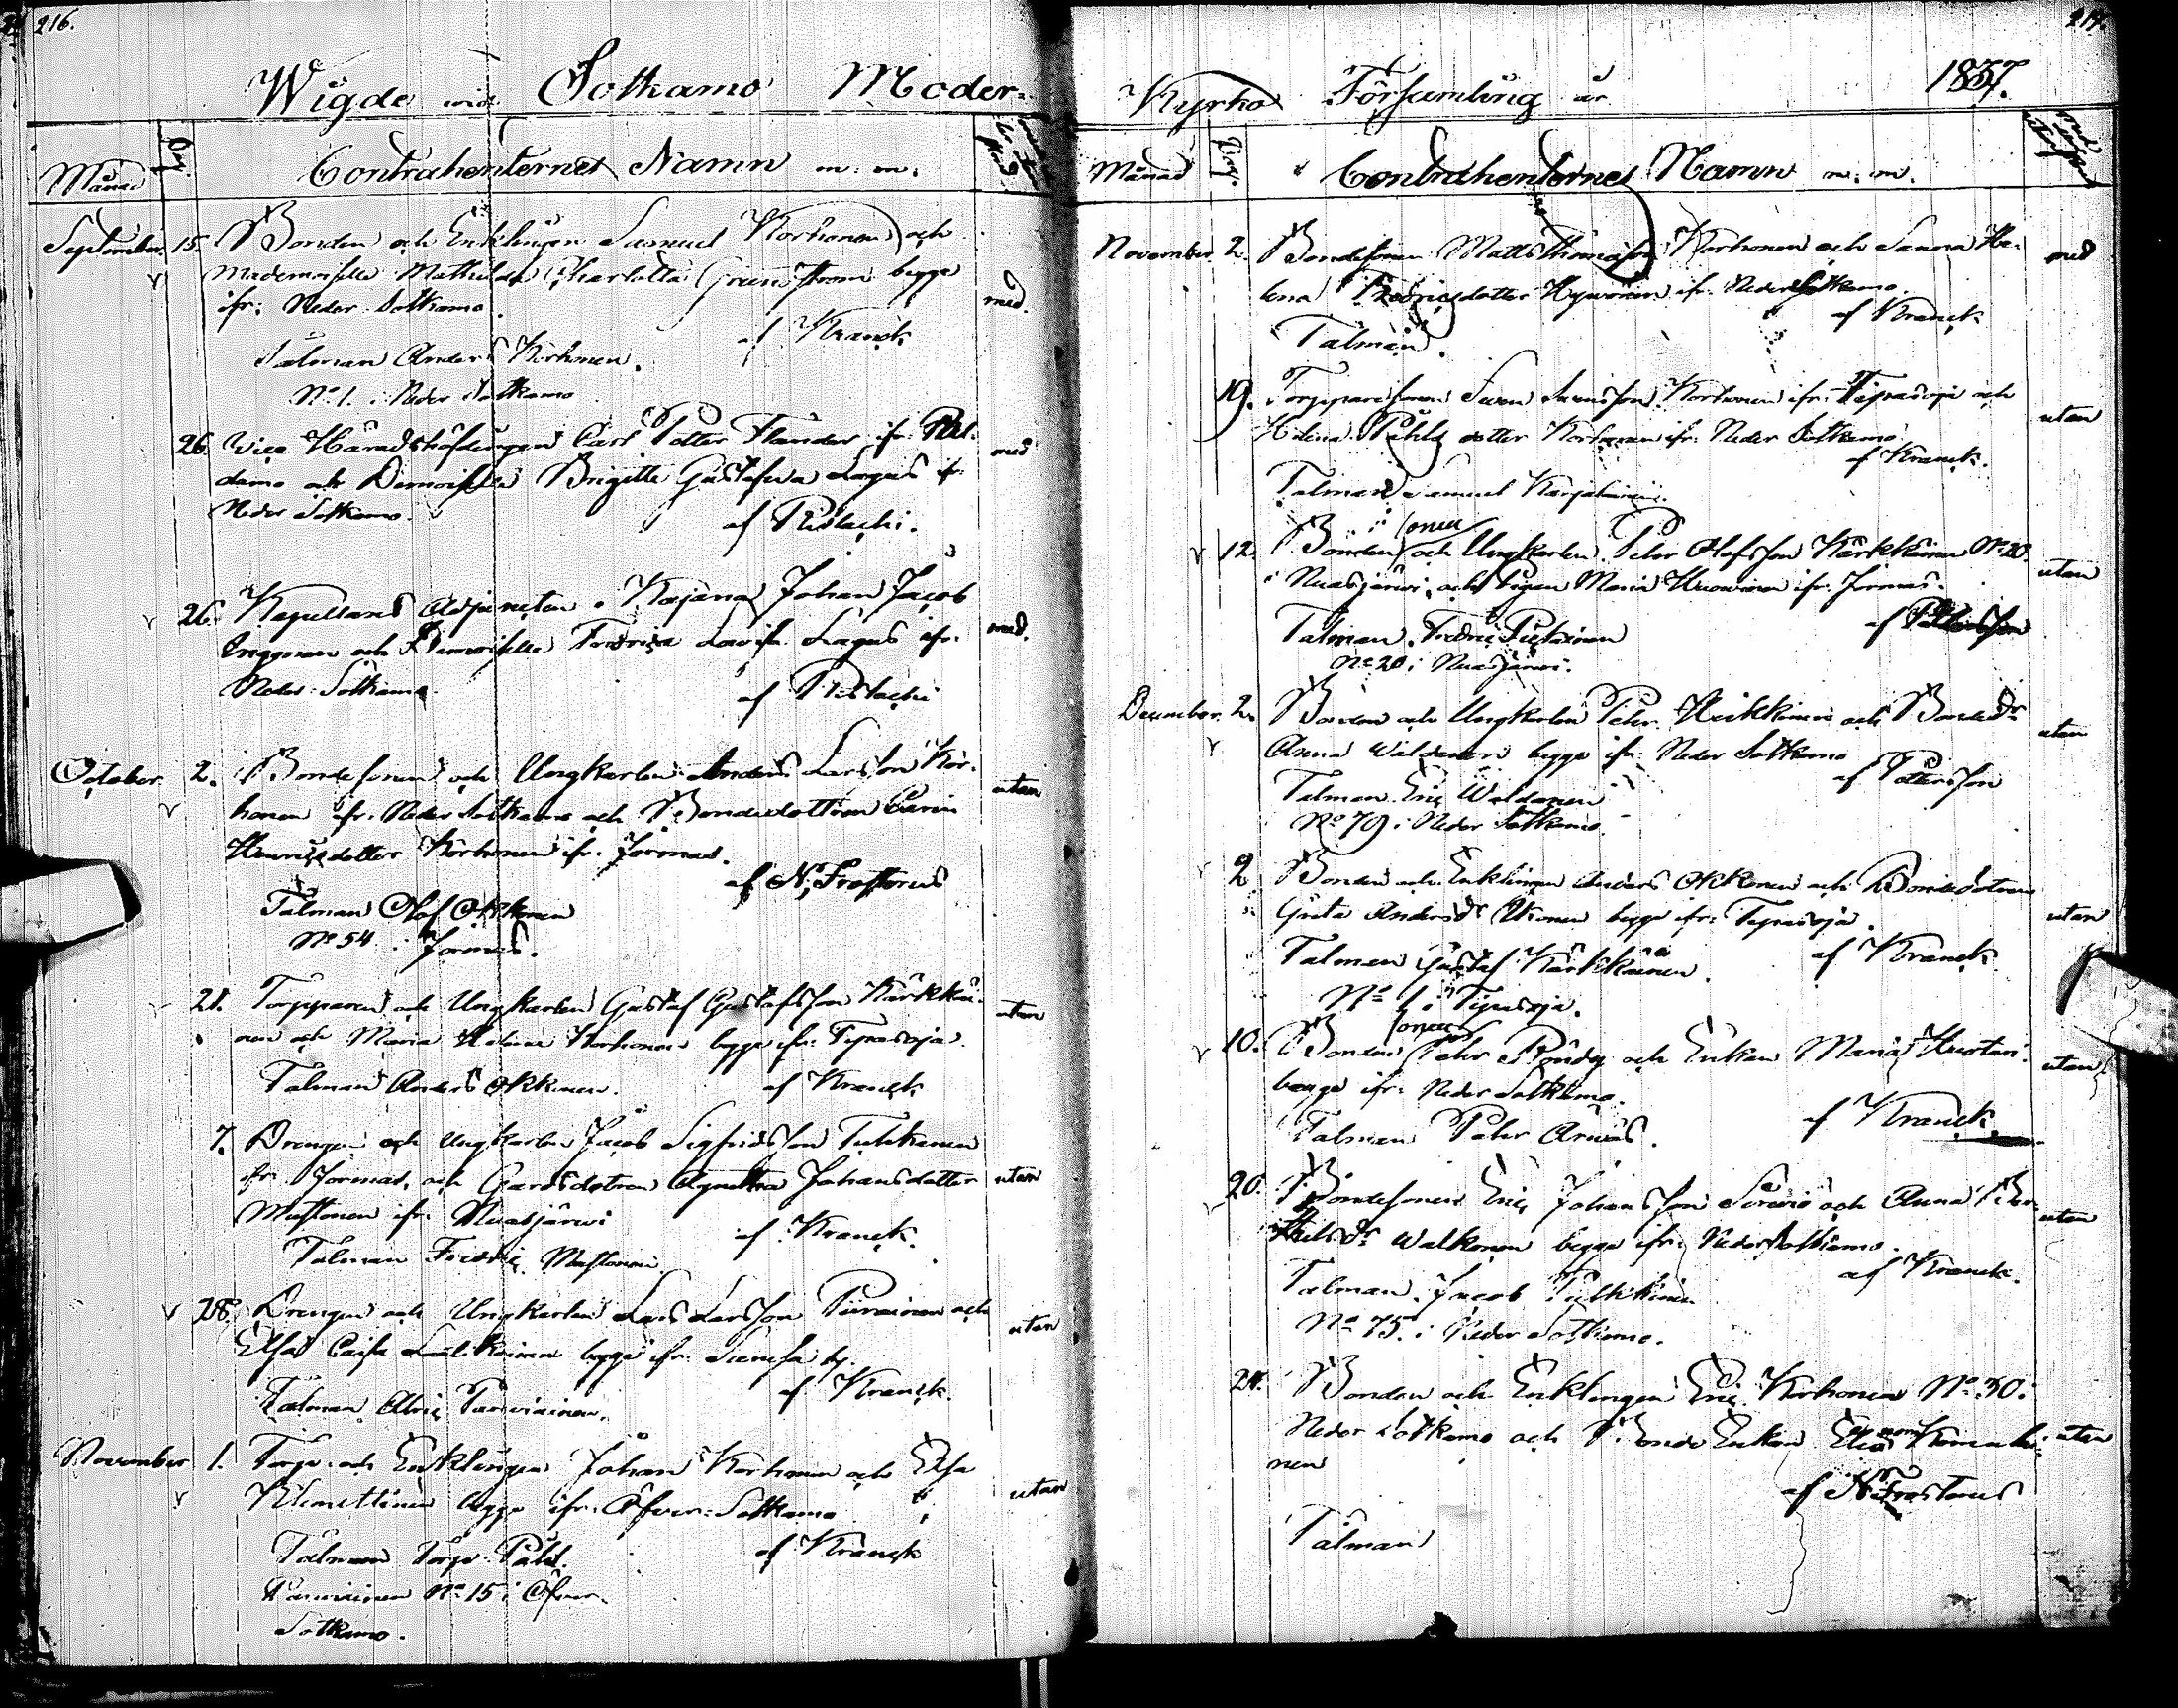 216.
Wigde wid Sotkamo Moder-
Månad
Dag.
Contrahenternes Namn m. m.
September. 15. Bonden och Enklingen Samuel Korhonen och
Mademoiselle Mathilda Charlotta Grunström begge
ifr. Neder Sotkamo. med.
af Kranck
Talman Anders Korhonen.
No 1. i Neder Sotkamo
26. Vice Häradshöfdingen Carl Petter Flander ifr.
och Demoiselle Brigitta Gustafva Lagus ifr. med
Neder Sotkamo.
af
26. Kapellans Adjuncten i Kajana Johan Jacob
och Demoiselle Fredrica Lovisa Lagus ifr. med.
Neder Sotkamo
af
October. 2. Bondesonen och Ungkarlen Anders Larsson Kor-
honen ifr. Neder Sotkamo och Bondedottren Carin utan
Henricsdotter Korhonen ifr. Jormas.
af N. Frosterus
Talman Olof Okkonen
No 54. i Jormas.
21. Torpparen och Ungkarlen Gustaf Gustafsson Kärkkäi-
nen och Maria Helena Korhonen begge ifr. Tipasoja. utan
Talman Anders Okkonen. af Kranck
7. Drengen och Ungkarlen Jacob Sigfridsson Tuhkanen
ifr. Jormas, och Gårdsdotren Agnetha Johansdotter utan
Mustonen ifr. Nuasjärwi
af Kranck.
Talman Fredric Mustonen
28. Drengen och Ungkarlen Lars Larsson Piirainen och
Elsa Caisa begge ifr. by. utan
af Kranck.
Talman Parviainen.
November 1. Torp. och Enklingen Johan Korhonen och Elsa
Klemettinen begge ifr. Öfver-Sotkamo utan
Talman Torp. Påhl. af Kranck
Parviainen No 15 i Öfver
Sotkamo.
217.
Kyrko Församling år 1837.
Månad
Dag.
Contrahenternes Namn m. m.
November. 2. Bondesonen Matts Thomasson Korhonen och Sanna He- med
lena Fredricsdotter Hyvönen ifr. Neder Sotkamo.
af Kranck
Talman.
19. Torpparesonen Sven Svensson Korhonen ifr. Tipasoja och
Helena Påhls dotter Korhonen ifr. Neder Sotkamo utan
af Kranck.
Talman Samuel Karjalainen.
sonen
12. Bonden och Ungkarlen Pehr Olofsson Kärkkäinen No 20.
i Nuasjärwi, och Pigan Maria Huovinen ifr. Jormas. utan
Talman Fredric Piirainen af Pettersson
No 20 i Nuasjärwi.
December. 2. Bonden och Ungkarlen Pehr Heikkinen och Bondedr
Anna Väldanen begge ifr. Neder Sotkamo utan
Talman Eric Waldanen af Pettersson
No 79 i Neder Sotkamo.
9 Bonden och Enklingen Anders Okkonen och Bondedotren
Greta Andersdr Ukonen begge ifr. Tipasoja. utan
Talman Gustaf Kärkkäinen. af Kranck
No 1 i Tipasoja.
sonen
10. Bonden Pehr och Enkan Maria
begge ifr. Neder Sotkamo. utan
af Kranck.
Talman Pehr
20. Bondesonen Eric Johansson och Anna
Walkonen begge ifr. Neder Sotkamo. utan
af Kranck.
Talman. Jacob Pulkkinen
No 75. i Neder Sotkamo.
24. Bonden och Enklingen Eric Korhonen No 30.
Neder Sotkamo och Bonde Enkan utan
nen
af N. Frosterus
Talman